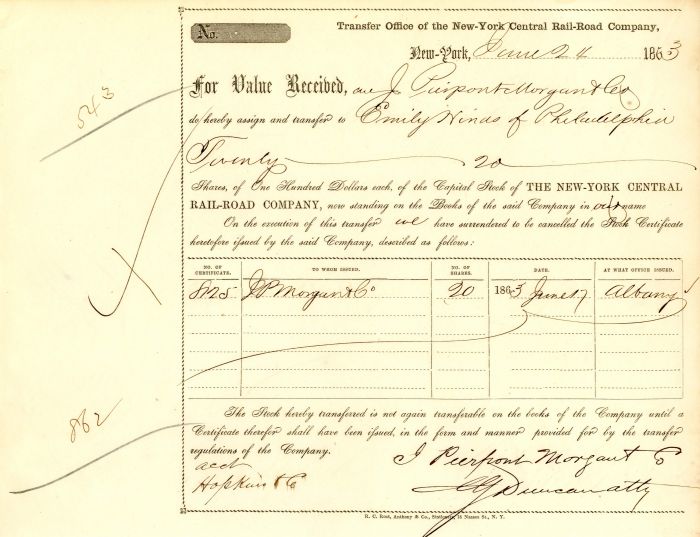 No.
Transfer Office of the New-York Central Rail-Road Company,
New-York, June 24 1863
For Value Received, we J. Pierpont Morgan & Co
do hereby assign and transfer to Emily Hinds of Philadelphia
Twenty 20
Shares, of One Hundred Dollars each, of the Capital Stock of THE NEW-YORK CENTRAL
RAIL-ROAD COMPANY, now standing on the Books of the said Company in our name
On the execution of this transfer we have surrendered to be cancelled the Stock Certificate
heretofore issued by the said Company, described as follows:
NO. OF CERTIFICATE. TO WHOM ISSUED. NO. OF SHARES. DATE. AT WHAT OFFICE ISSUED:
8125 J.P. Morgan & Co 20 1863 June 17 Albany
The Stock hereby transferred is not again transferable on the books of the Company until a
Certificate therefor shall have been issued, in the form and manner provided for by the transfer
regulations of the Company.
acct
Hopkins & C
J Pierpont Morgan & Co
Duncan atty
R. C. Root, Anthony & Co., Stationers, 16 Nassau St., N. Y.
543
862